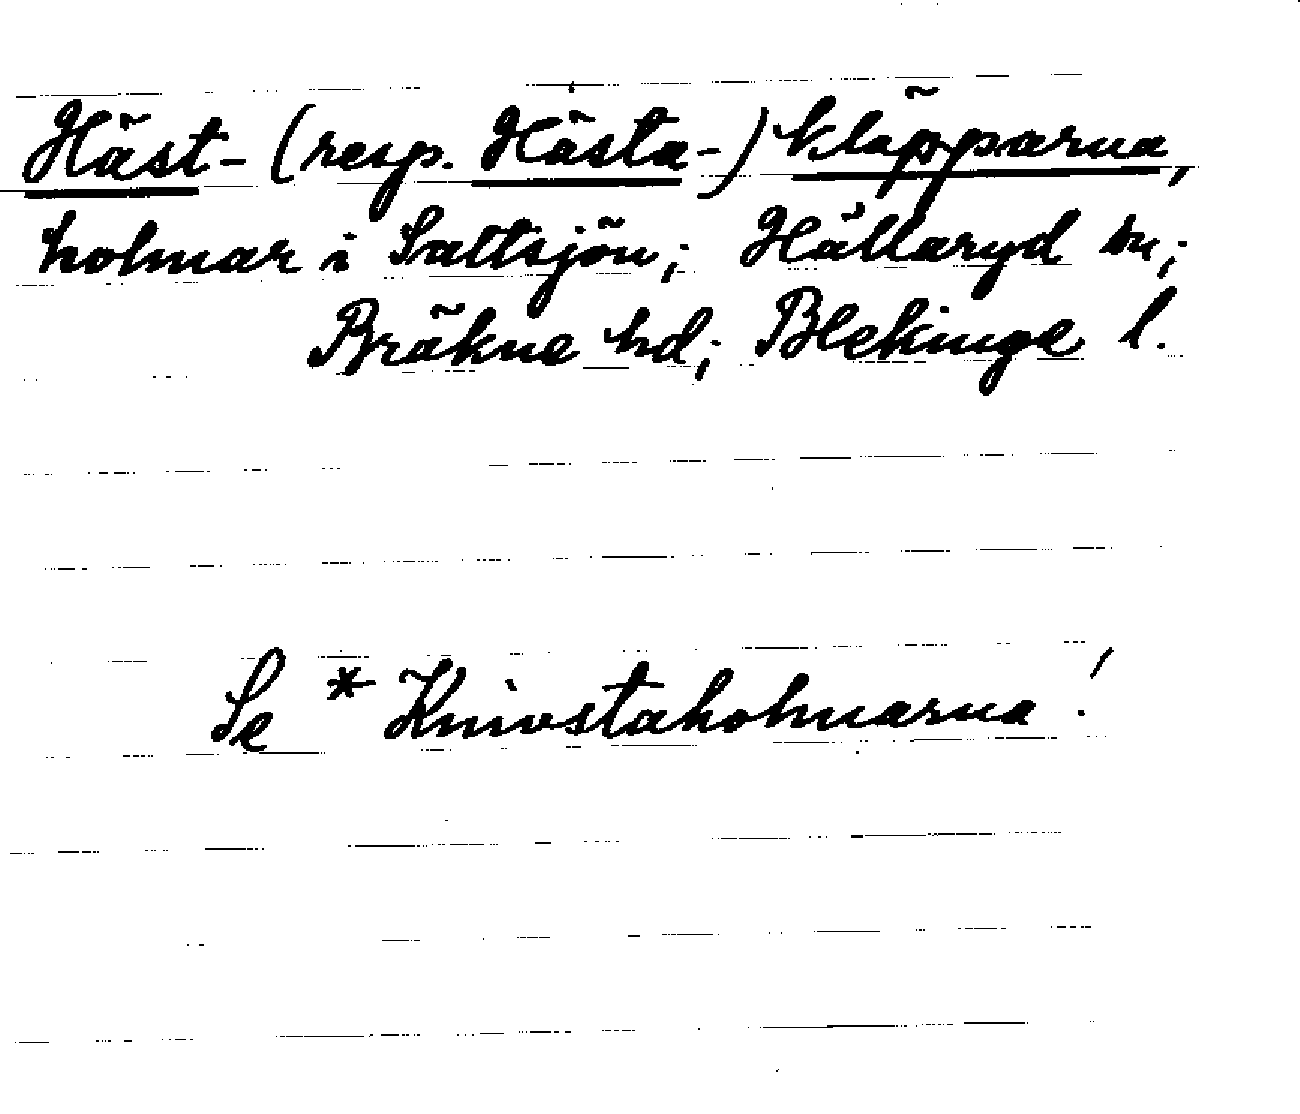 Häst- (resp. Hästa-) kläpparna,
holmar i Saltsjön; Hällaryd sn;
Bräkne hd; Blekinge l.
Se * Knivstaholmarna!